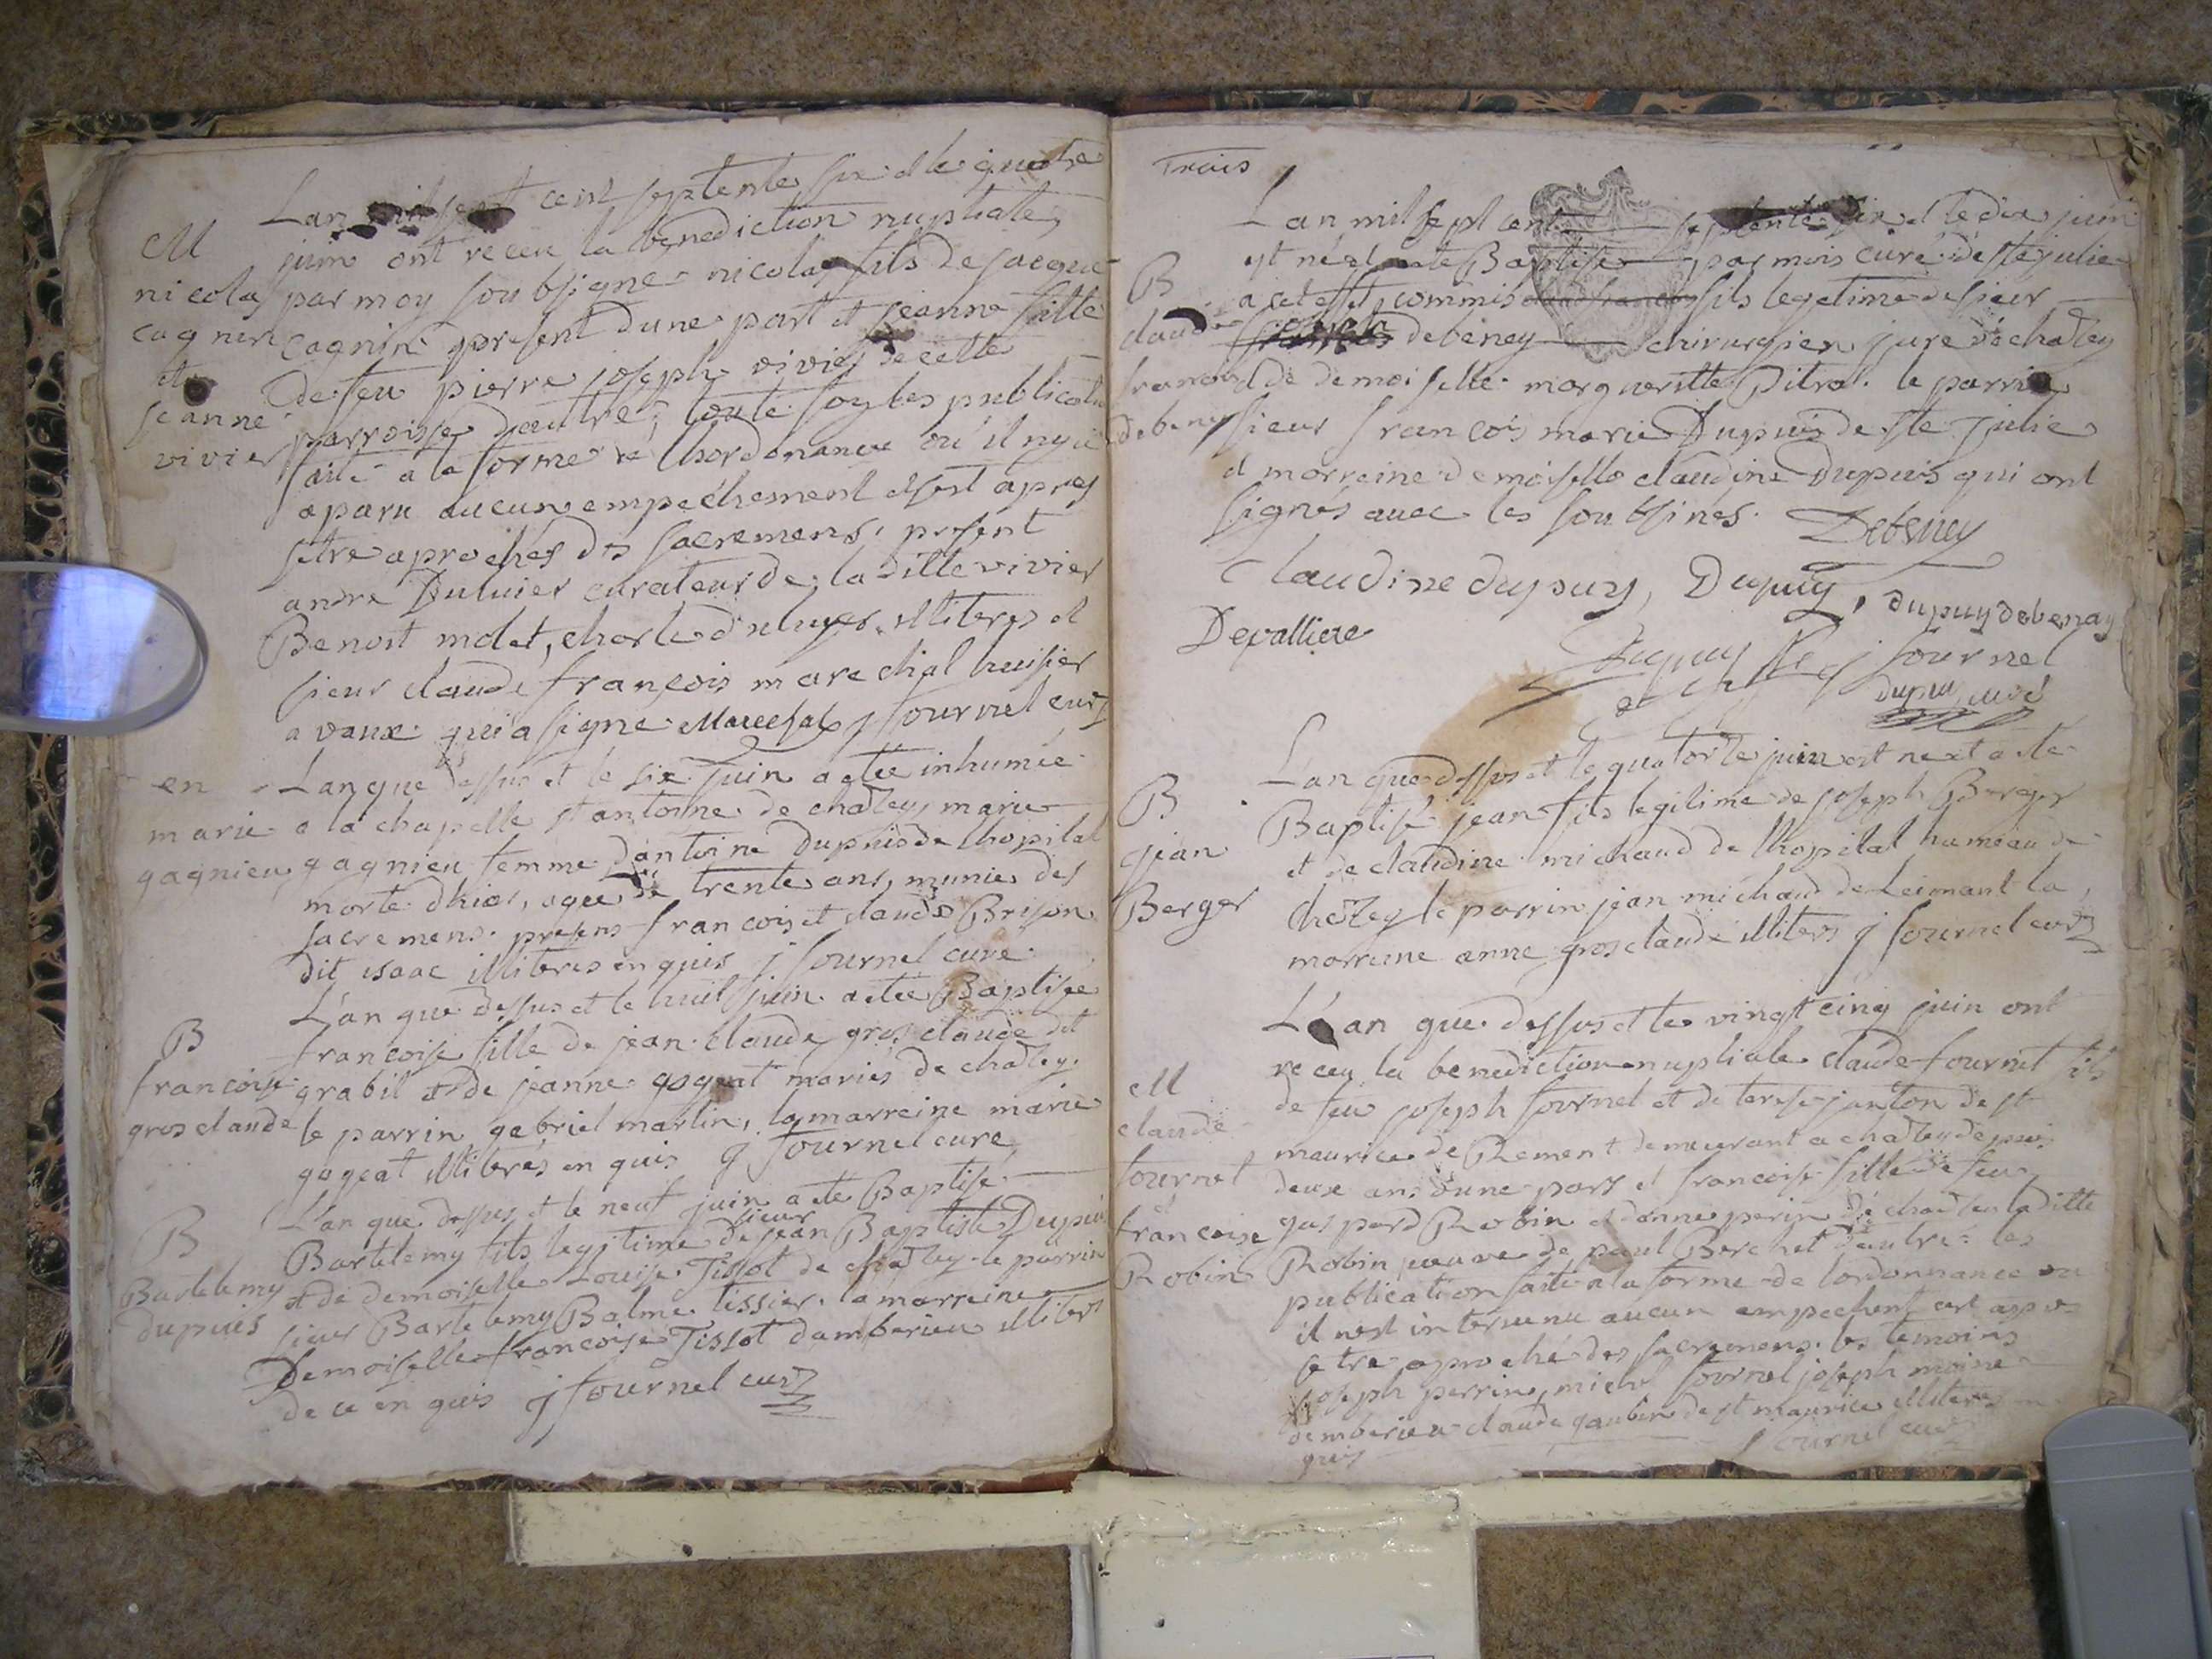 M
nicolas
cagnin
et
jeanne
vivier
Lan mil sept cent septente six et le quatre
juin ont receu la benediction nuptiale
par moy soubsigne nicolas fils de jacque
cagnin present dune part et jeanne fille
de feu pierre joseph vivier de cette
parroisse dautre, toute foy les publication
faite a la forme de lhordonance ou il ny a
aparu aucun empechement et sest apres
setre aprochés des sacremens, present
andre Duluier curateur de la ditte vivier
Benoit molet, charle duluyer illiteres et
sieur claude françois marechial huisier
a vaux qui a signe Marechal j fournel curé
en
marie
gagnieu
Lan que dessus et le six juin a etée inhumée
a la chapelle st antoine de chazey marie
gagnieu femme dantoine dupuis de lhopital
morte dhier, agee de trente ans, munie des
sacremens. presens francois et claude Brison
dit isaac illiteres enquis j fournel curé
B
francoise
grosclaude
L'an que dessus et le huit juin a etée Baptisée
francoise fille de jean claude gros claude dit
grabil et de jeanne gogeat mariés de chazey.
le parrin gabriel martin, la marreine marie
gogeat illiterés enquis j fournel cure
B
Bartelemy
dupuis
L'an que dessus et le neuf juin a ete Baptisé
sieur
Bartelemy fils legitime de jean Baptiste Dupuis
et de demoiselle Louise Tissot de chazey le parrin
sieur Bartelemy Balme tissier. la marreine
Demoiselle francoise Tissot damberieu illiteres
de ce enquis j fournel curé
Trois
B
claude
francois
debeney
Lan mil sept cent septente six et le dix juin
est né et ete Baptisé par mois curé de ste julie
a cet effet commis claude francois fils legetime de sieur
francois debeney chirurgien juré de chazey
et de demoiselle marguerite Pitra. le parrin
sieur francois marie Dupuis de ste julie
et marreine demoiselle claudine Dupuis qui ont
signés avec les soubsinés. Debeney
Claudine dupuy, Dupuy, dupuy debenay
Depalliere
fournel
dupuy curé
B
jean
Berger
L'an que dessus et le quatorze juin est né et a ete
Baptisé jean fils legitime de joseph Berger
et de claudine michaud de lhopital hameau de
chazey le parrin jean michaud de Leimant la
marreine anne grosclaude illiteres j fournel curé
M
claude
fournel
et
francoise
Robin
L'an que dessus et le vingt cinq juin ont
receu la benediction nuptiale claude fournel fils
de feu joseph fournel et de terese janton de st
maurice de Rement demeurant a chazey depuis
deux ans dune part et francoise fille de feu
gaspard Robin et danne perin de chazey la ditte
Robin veuve de paul Berchet dautre les
publication faite a la forme de lordonnance ou
il nest intervenu aucun empechent et apre
setre aproché des sacremens. les temoins
joseph perrin, michel fournel joseph moine
damberieu claude gaubin de st maurice illiteres en
quis j fournel curé